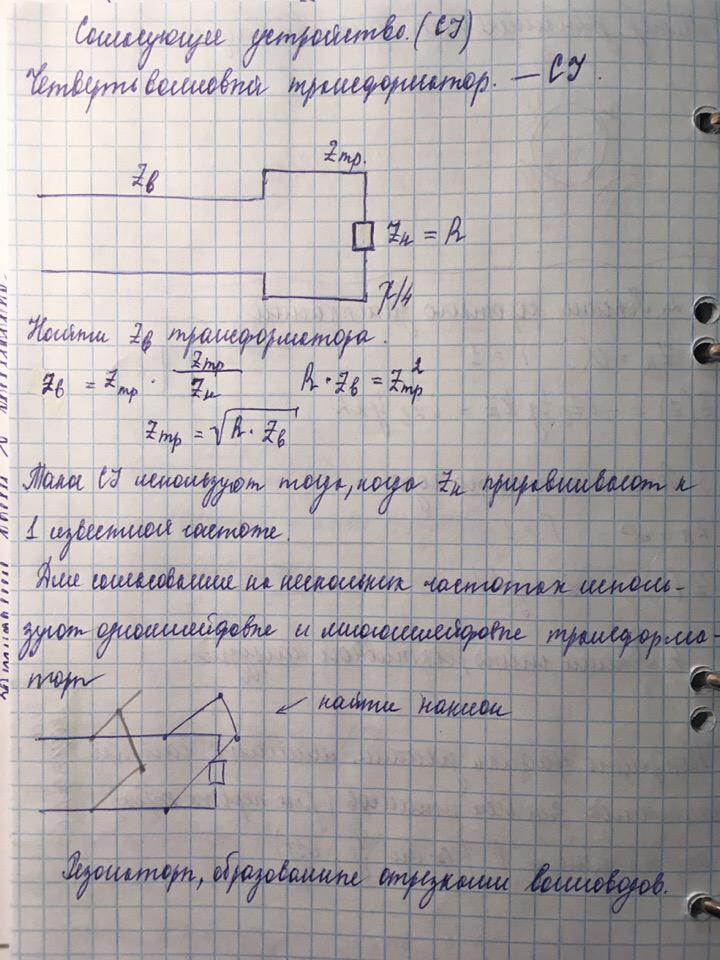 Согласующее устройство. (СУ)
Четвертьволновой трансформатор. — СУ.
Zтр.
Zв
Zн = R
λ/4
Найти Zв трансформатора.
Zв = Zтр · Zтр/Zн R · Zв = Zтр²
Zтр = √(R · Zв)
Такое СУ используют тогда, когда Zн приравнивают к
1 известной частоте.
Для согласование на нескольких частотах исполь-
зуют одношлейфовые и многошлейфовые трансформа-
торы
← найти
Резонаторы, образованные отрезками волноводов.